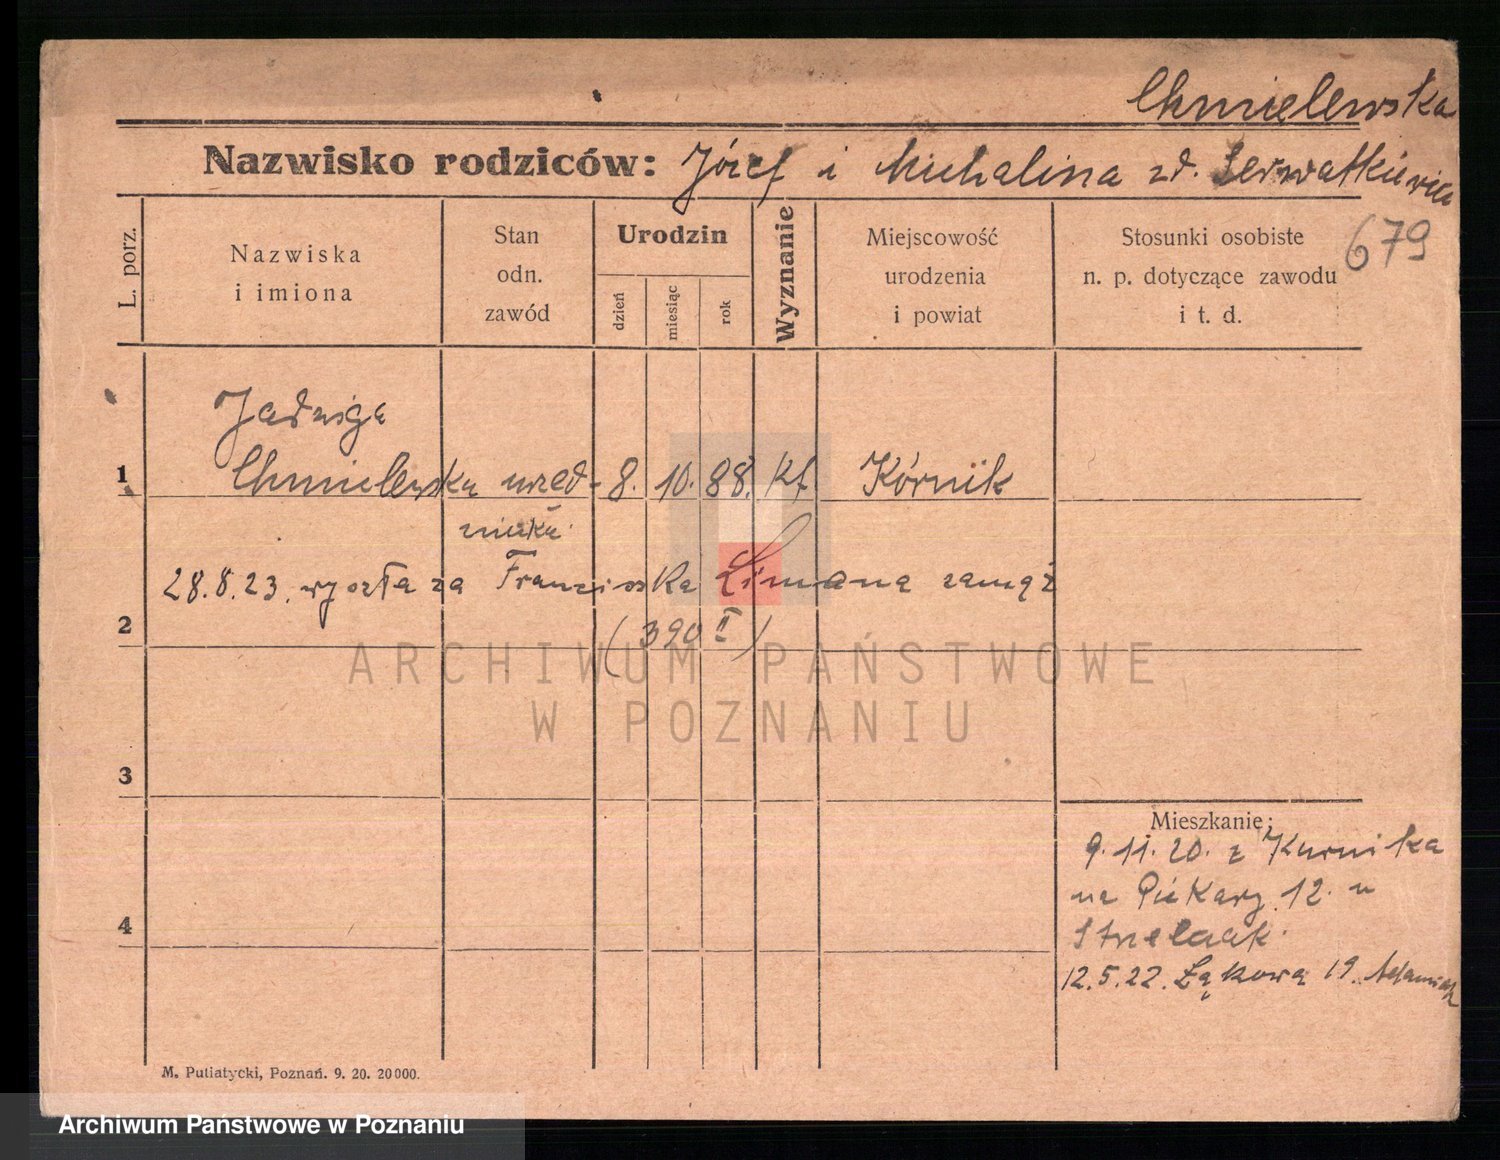 Chmielewska
Nazwisko rodziców: Józef i Michalina zd. Serwatkiewicz
679
L. porz.
Nazwiska
i imiona
Stan
odn.
zawód
Urodzin
dzień
miesiąc
rok
Wyznanie
Miejscowość
urodzenia
i powiat
Stosunki osobiste
n. p. dotyczące zawodu
i t. d.
Jadwiga
1 Chmielewska urzęd- 8. 10. 88. kt. Kórnik
niczka
28.8.23. wyszła za Franciszka Limana zamąż
2 (390 II)
ARCHIWUM PAŃSTWOWE
W POZNANIU
3
Mieszkanie:
9.11.20. z Kurnika
na Piekary 12. u
4
12.5.22. Łąkowa 19. Adamiak
M. Putiatycki, Poznań. 9. 20. 20000.
Archiwum Państwowe w Poznaniu